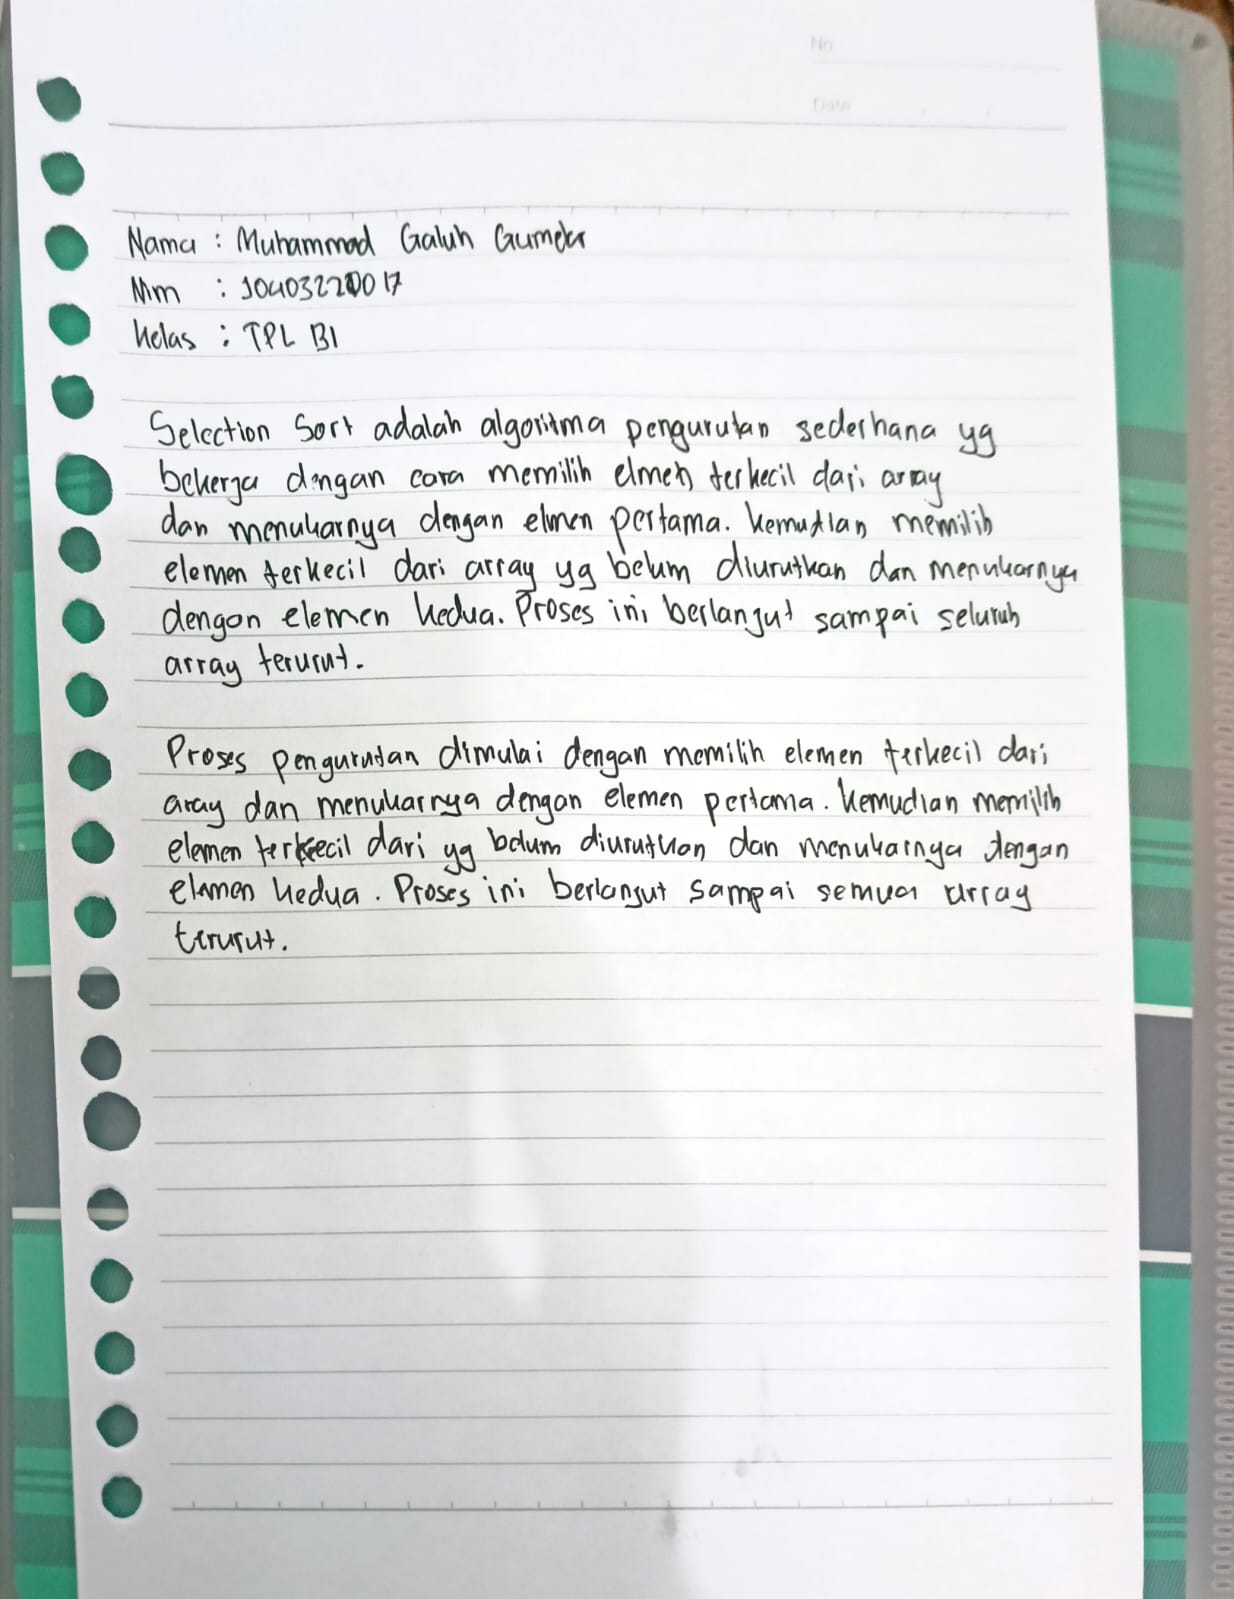 No
Date
Nama : Muhammad Galuh Gumelar
Nim : 10403220017
Kelas : TPL B1
Selection Sort adalah algoritma pengurutan sederhana yg
bekerja dengan cara memilih elmen terkecil dari array
dan menukarnya dengan elmen pertama. Kemudian memilih
elemen terkecil dari array yg belum diurutkan dan menukarnya
dengan elemen kedua. Proses ini berlanjut sampai seluruh
array terurut.
Proses pengurutan dimulai dengan memilih elemen terkecil dari
array dan menukarnya dengan elemen pertama. Kemudian memilih
elemen terkecil dari yg belum diurutkan dan menukarnya dengan
elemen kedua. Proses ini berlanjut sampai semua array
terurut.